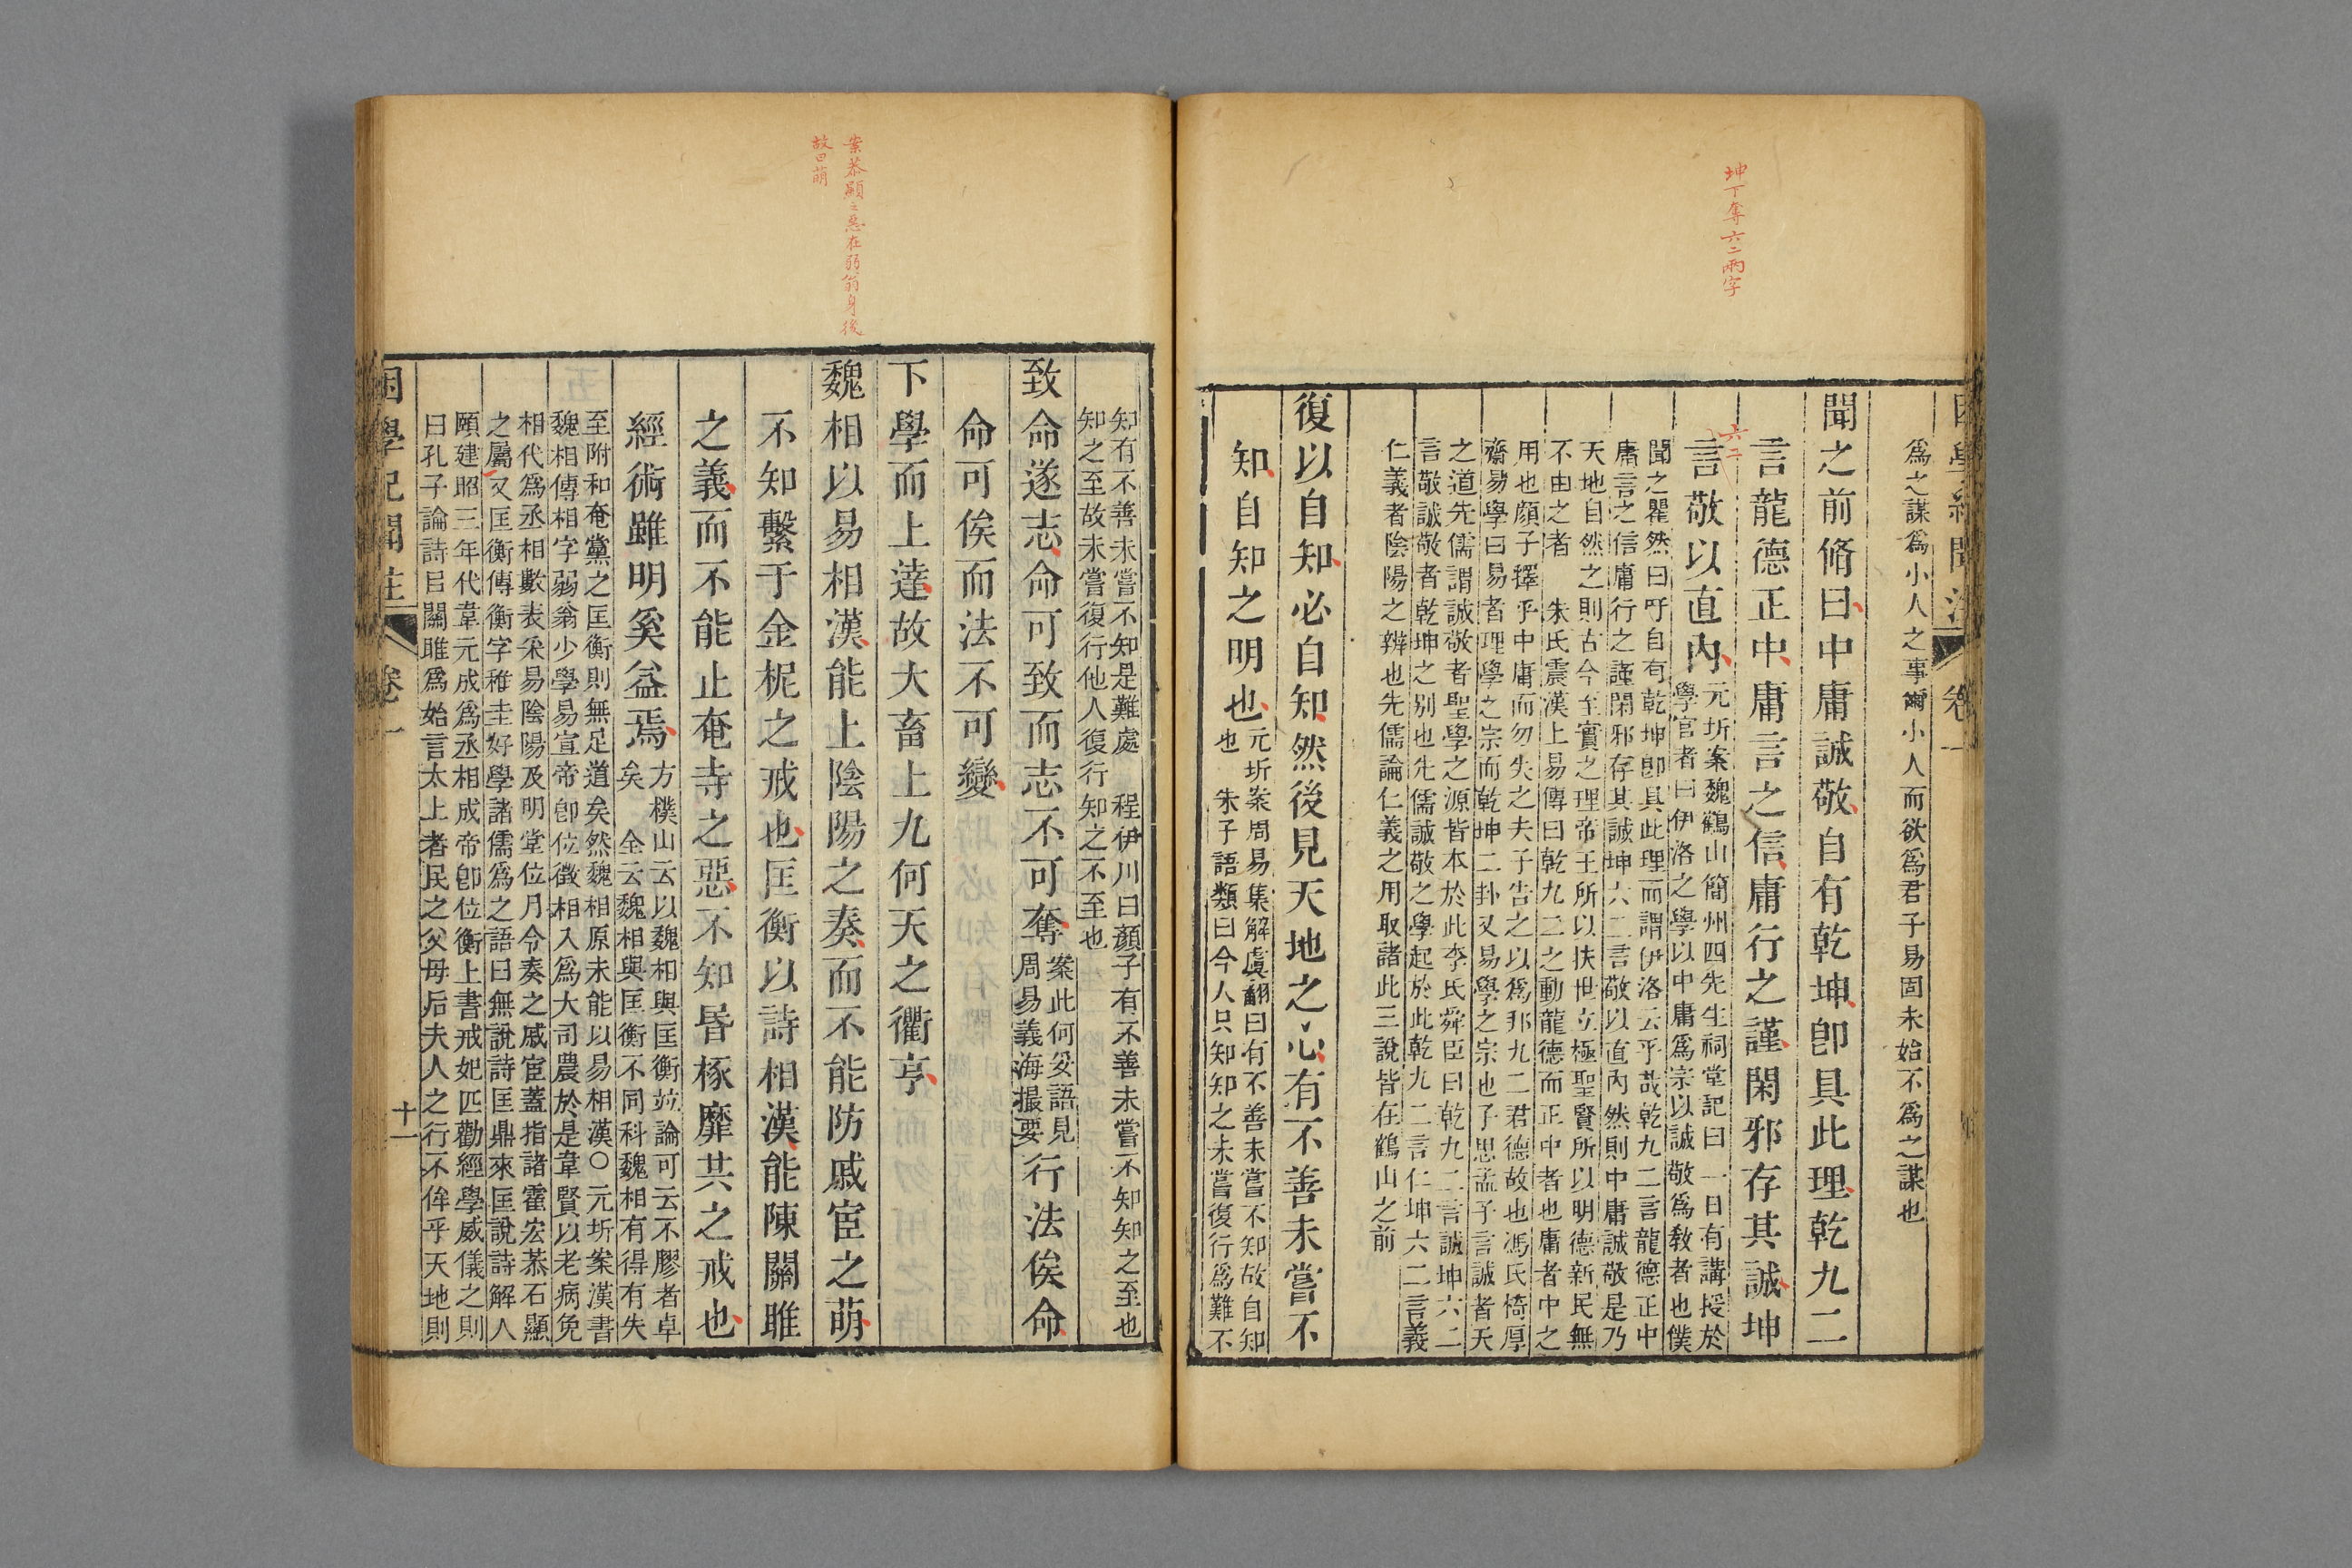 坤下奪六二兩字
困學紀聞注 卷一
爲之謀爲小人之事爾小人而欲爲君子易固未始不爲之謀也
聞之前脩曰中庸誠敬自有乾坤卽具此理乾九二
言龍德正中庸言之信庸行之謹閑邪存其誠坤
六二
言敬以直內
元圻案魏鶴山簡州四先生祠堂記曰一日有講授於
學官者曰伊洛之學以中庸爲宗以誠敬爲敎者也僕
聞之瞿然曰吁自有乾坤卽具此理而謂伊洛云乎哉乾九二言龍德正中
庸言之信庸行之謹閑邪存其誠坤六二言敬以直內然則中庸誠敬是乃
天地自然之則古今至實之理帝王所以扶世立極聖賢所以明德新民無
不由之者 朱氏震漢上易傳曰乾九二之動龍德而正中者也庸者中之
用也顏子擇乎中庸而勿失之夫子告之以爲邦九二君德故也馮氏椅厚
齋易學曰易者理學之宗而乾坤二卦又易學之宗也子思孟子言誠者天
之道先儒謂誠敬者聖學之源皆本於此李氏舜臣曰乾九二言誠坤六二
言敬誠敬者乾坤之別也先儒誠敬之學起於此乾九二言仁坤六二言義
仁義者陰陽之辨也先儒論仁義之用取諸此三說皆在鶴山之前
復以自知必自知然後見天地之心有不善未嘗不
知自知之明也
元圻案周易集解虞翻曰有不善未嘗不知故自知
也 朱子語類曰今人只知知之未嘗復行爲難不
案恭顯之惡在弱翁身後
故曰萌
知有不善未嘗不知是難處 程伊川曰顏子有不善未嘗不知知之至也
知之至故未嘗復行他人復行知之不至也
致命遂志命可致而志不可奪
案此何妥語見
周易義海撮要
行法俟命
命可俟而法不可變
下學而上達故大畜上九何天之衢亨
魏相以易相漢能上陰陽之奏而不能防戚宦之萌
不知繫于金柅之戒也匡衡以詩相漢能陳關雎
之義而不能止奄寺之惡不知昏椓靡共之戒也
經術雖明奚益焉
方樸山云以魏相與匡衡竝論可云不膠者卓
矣 全云魏相與匡衡不同科魏相有得有失
至附和奄黨之匡衡則無足道矣然魏相原未能以易相漢○元圻案漢書
魏相傳相字弱翁少學易宣帝卽位徵相入爲大司農於是韋賢以老病免
相代爲丞相數表采易陰陽及明堂位月令奏之戚宦蓋指諸霍宏恭石顯
之屬又匡衡傳衡字稚圭好學諸儒爲之語曰無說詩匡鼎來匡說詩解人
頤建昭三年代韋元成爲丞相成帝卽位衡上書戒妃匹勸經學威儀之則
曰孔子論詩㠯關雎爲始言太上者民之父母后夫人之行不侔乎天地則
困學紀聞注 卷一 十一